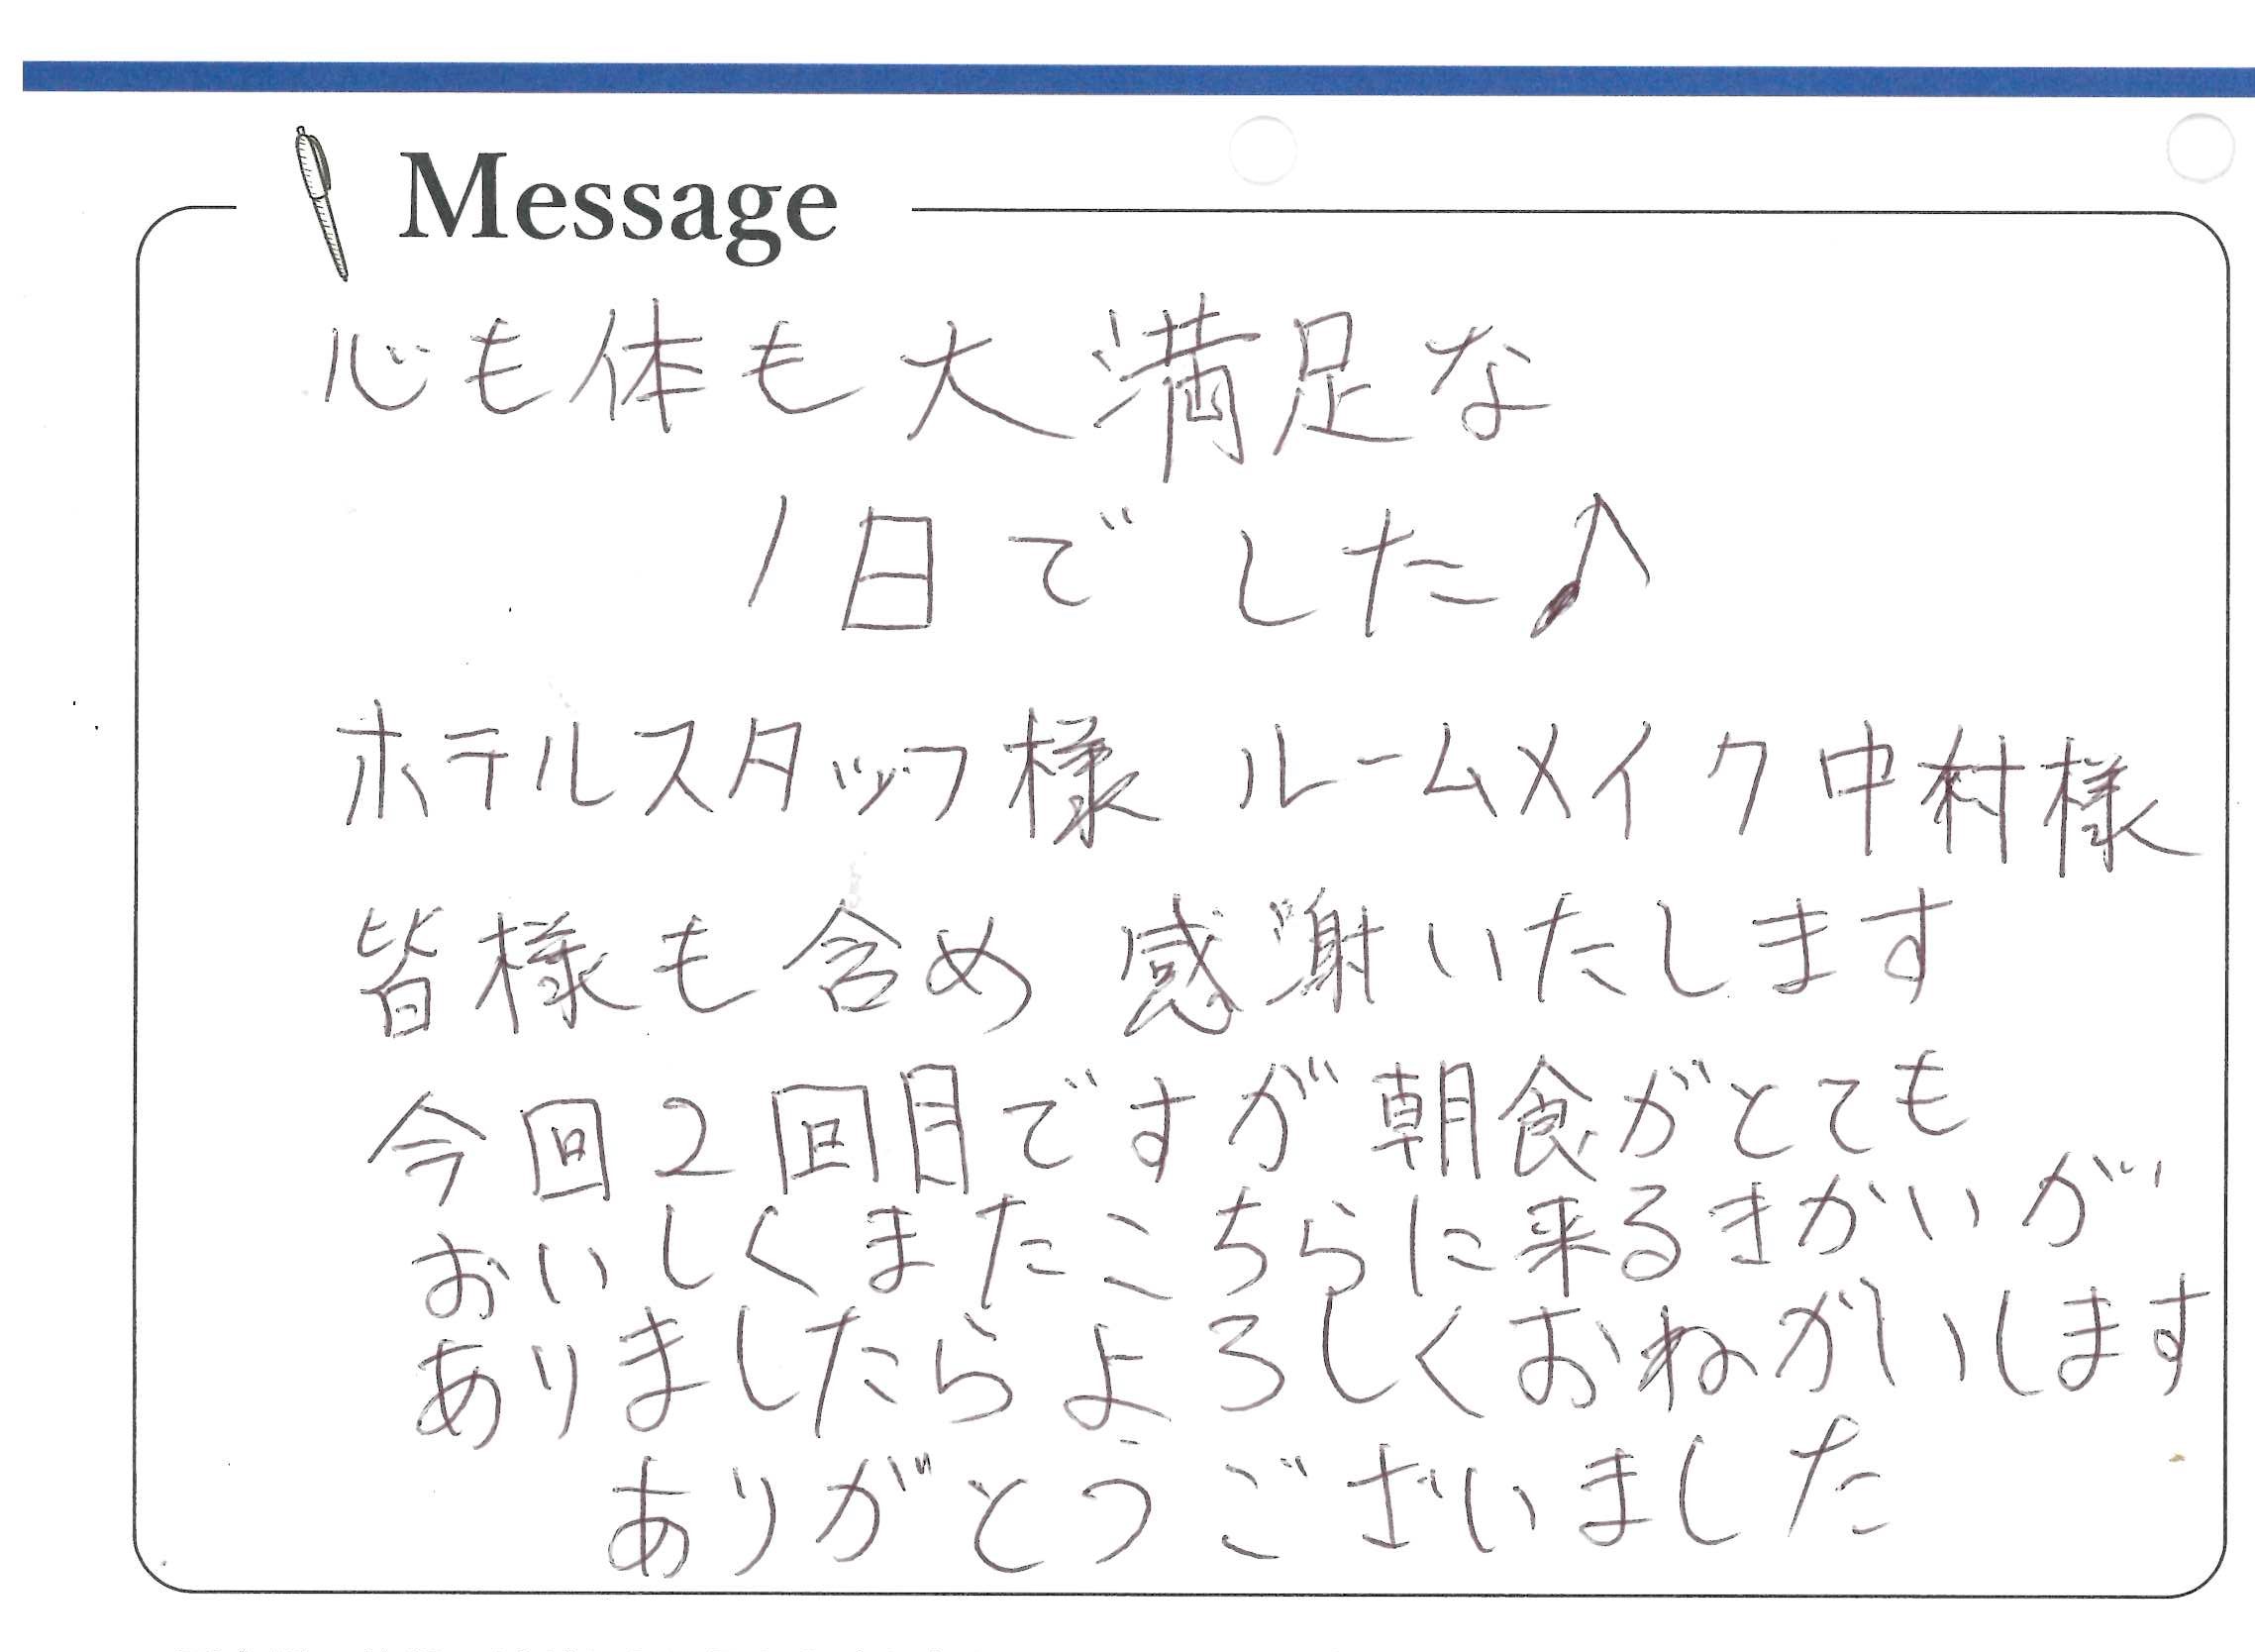 Message
心も体も大満足な
1日でした♪
ホテルスタッフ様 ルームメイク中村様
皆様も含め 感謝いたします
今回2回目ですが朝食がとても
おいしくまたこちらに来るきかいが
ありましたらよろしくおねがいします
ありがとうございました